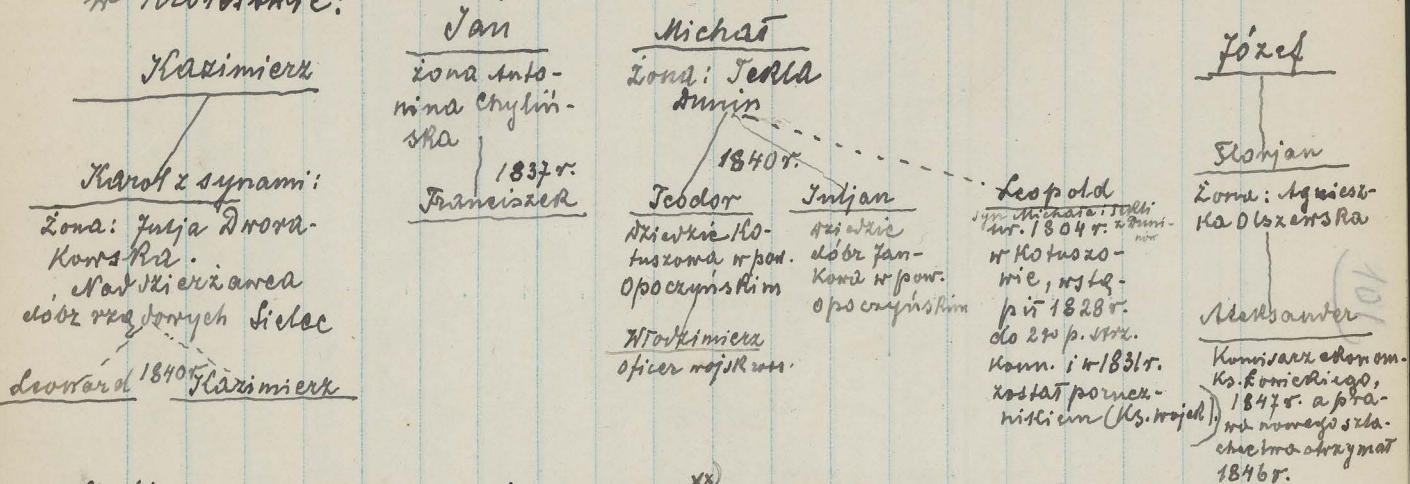 Kazimierz
Karol z synami:
Żona: Julja Dwora-
kowska.
Naddzierżawca
dóbr rządowych Sielec
Leonard 1840r. Kazimierz
Jan
żona Anto-
nina Chyliń-
ska
1837r.
Franciszek
Michał
Żona: Tekla
Dunin
1840r.
Teodor
dziedzic Ko-
tuszowa w pow.
Opoczyńskim
Włodzimierz
oficer wojsk ros.
Juljan
dziedzic
dóbr Jan-
kowa w pow.
opoczyńskim
Leopold
syn Michała i Tekli
z Duni-
nów
ur. 1804r.
w Kotuszo-
wie, wstą-
pił 1828r.
do 2go p. strz.
konn. i w 1831r.
został porucz-
nikiem (Ks. wojsk).
Józef
Florjan
Żona: Agniesz-
ka Olszewska
Aleksander
Komisarz ekonom.
Ks. Łowickiego,
1847r. a pra-
wa nowego szla-
chectwa otrzymał
1846r.
10
xx)